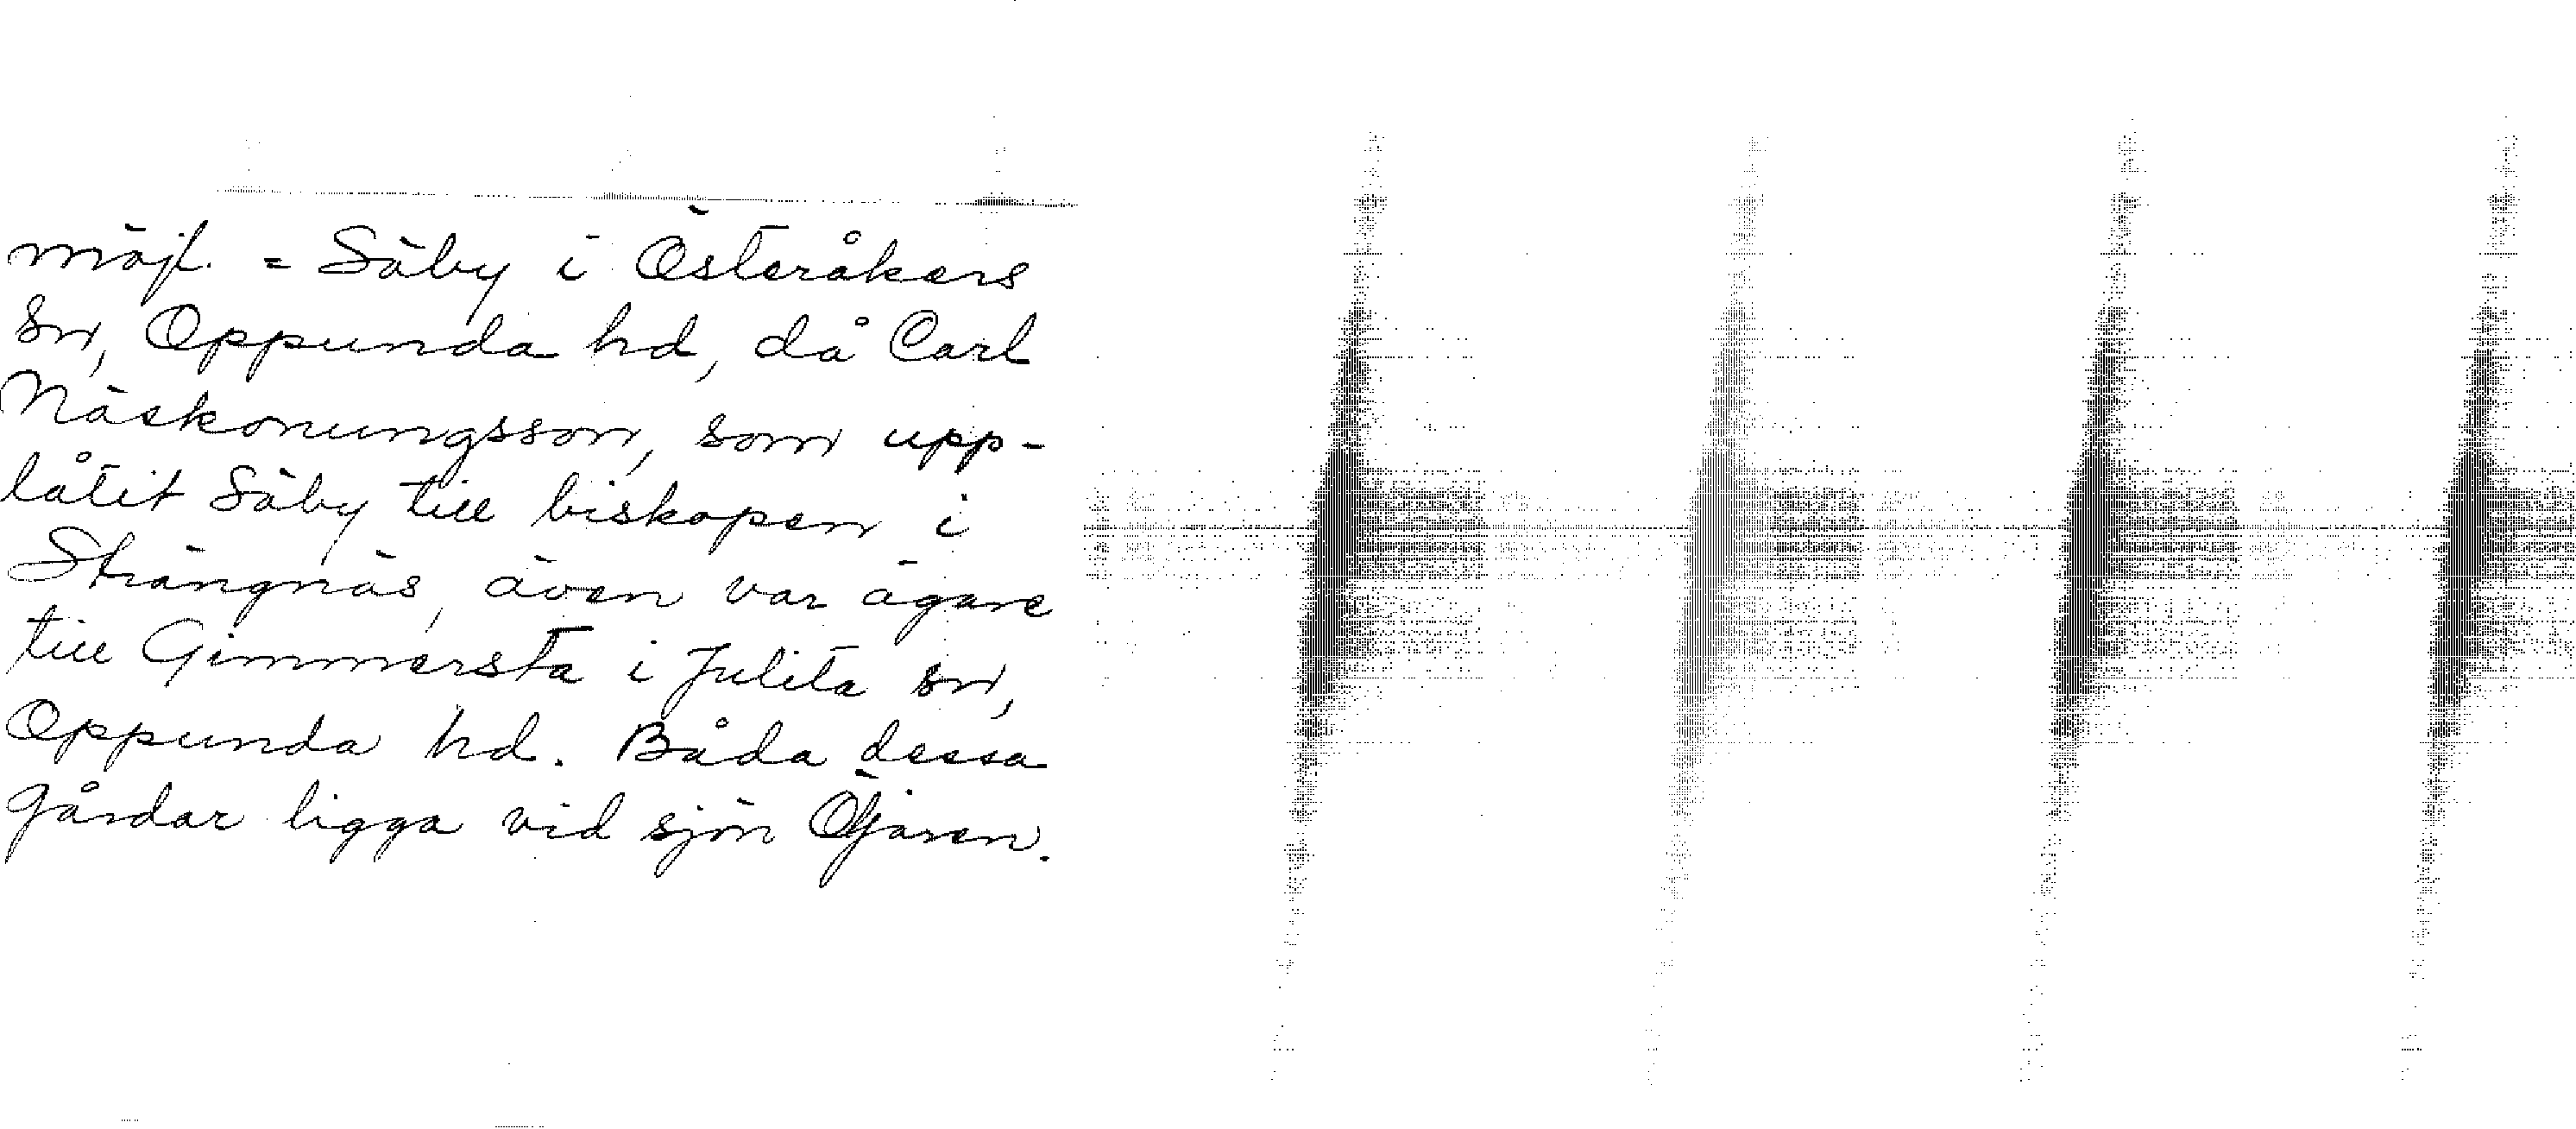 möjl. = Säby i Österåkers
sn, Oppunda hd, då Carl
Näskonungsson, som upp-
låtit Säby till biskopen i
Strängnäs, även var ägare
till Gimmersta i Julita sn,
Oppunda hd. Båda dessa
gårdar ligga vid sjön Öljaren.